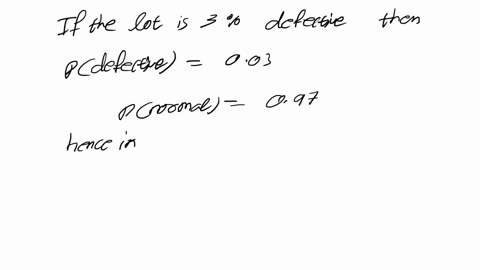 If the lot is 3% defective then
P(defective) = 0.03
P(normal) = 0.97
hence in